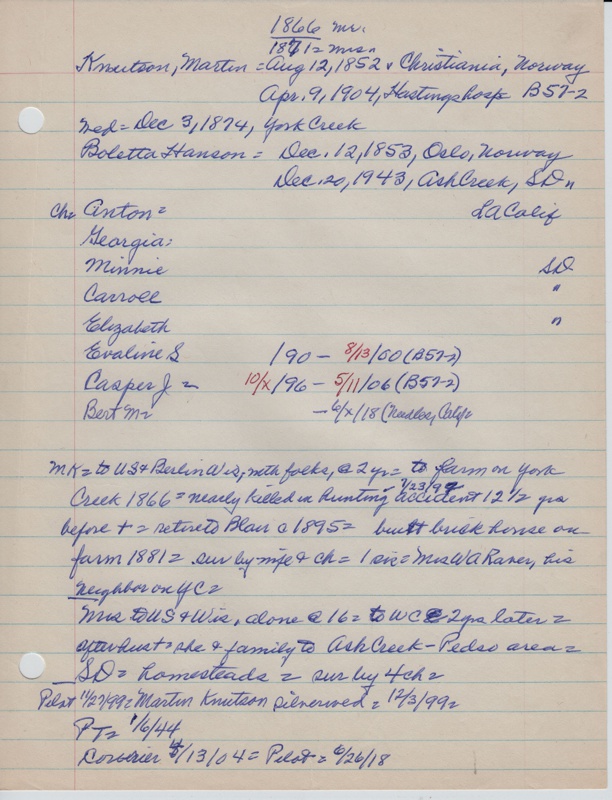 1866 mr.
1871 = mrs.
Knutson, Martin = Aug 12, 1852 Christiania, Norway
Apr. 9, 1904, Hastings hosp B57-2
Wed = Dec 3, 1874, York Creek
Boletta Hanson = Dec. 12, 1853, Oslo, Norway
Dec. 20, 1943, Ash Creek, SD
Ch = Anton = LA Calif
Georgia:
Minnie SD
Carroll "
Elizabeth "
Evaline S /90 - 8/13/00 (B57-2)
Casper J = 10/x/96 - 5/11/06 (B57-2)
Bert M = - 6/x/18 (Needles, Calif =
MK = to US & Berlin Wis, with folks, @ 2 yr = to farm on York
Creek 1866 = nearly killed in hunting accident 12½ yrs
7/23/92
before + = retire to Blair c 1895 = built brick house on
farm 1881 = sur by wife & ch = 1 sis = Mrs WA Raver, his
neighbor on YC =
Mrs to US & Wis, alone @ 16 = to WC 2 yrs later =
after hus + she & family to Ash Creek - area =
SD = homesteads = sur by 4 ch =
Pilot 11/27/99 = Martin Knutson silverwed = 12/3/99 =
PT = 1/6/44
Courier 4/13/04 = Pilot = 6/26/18